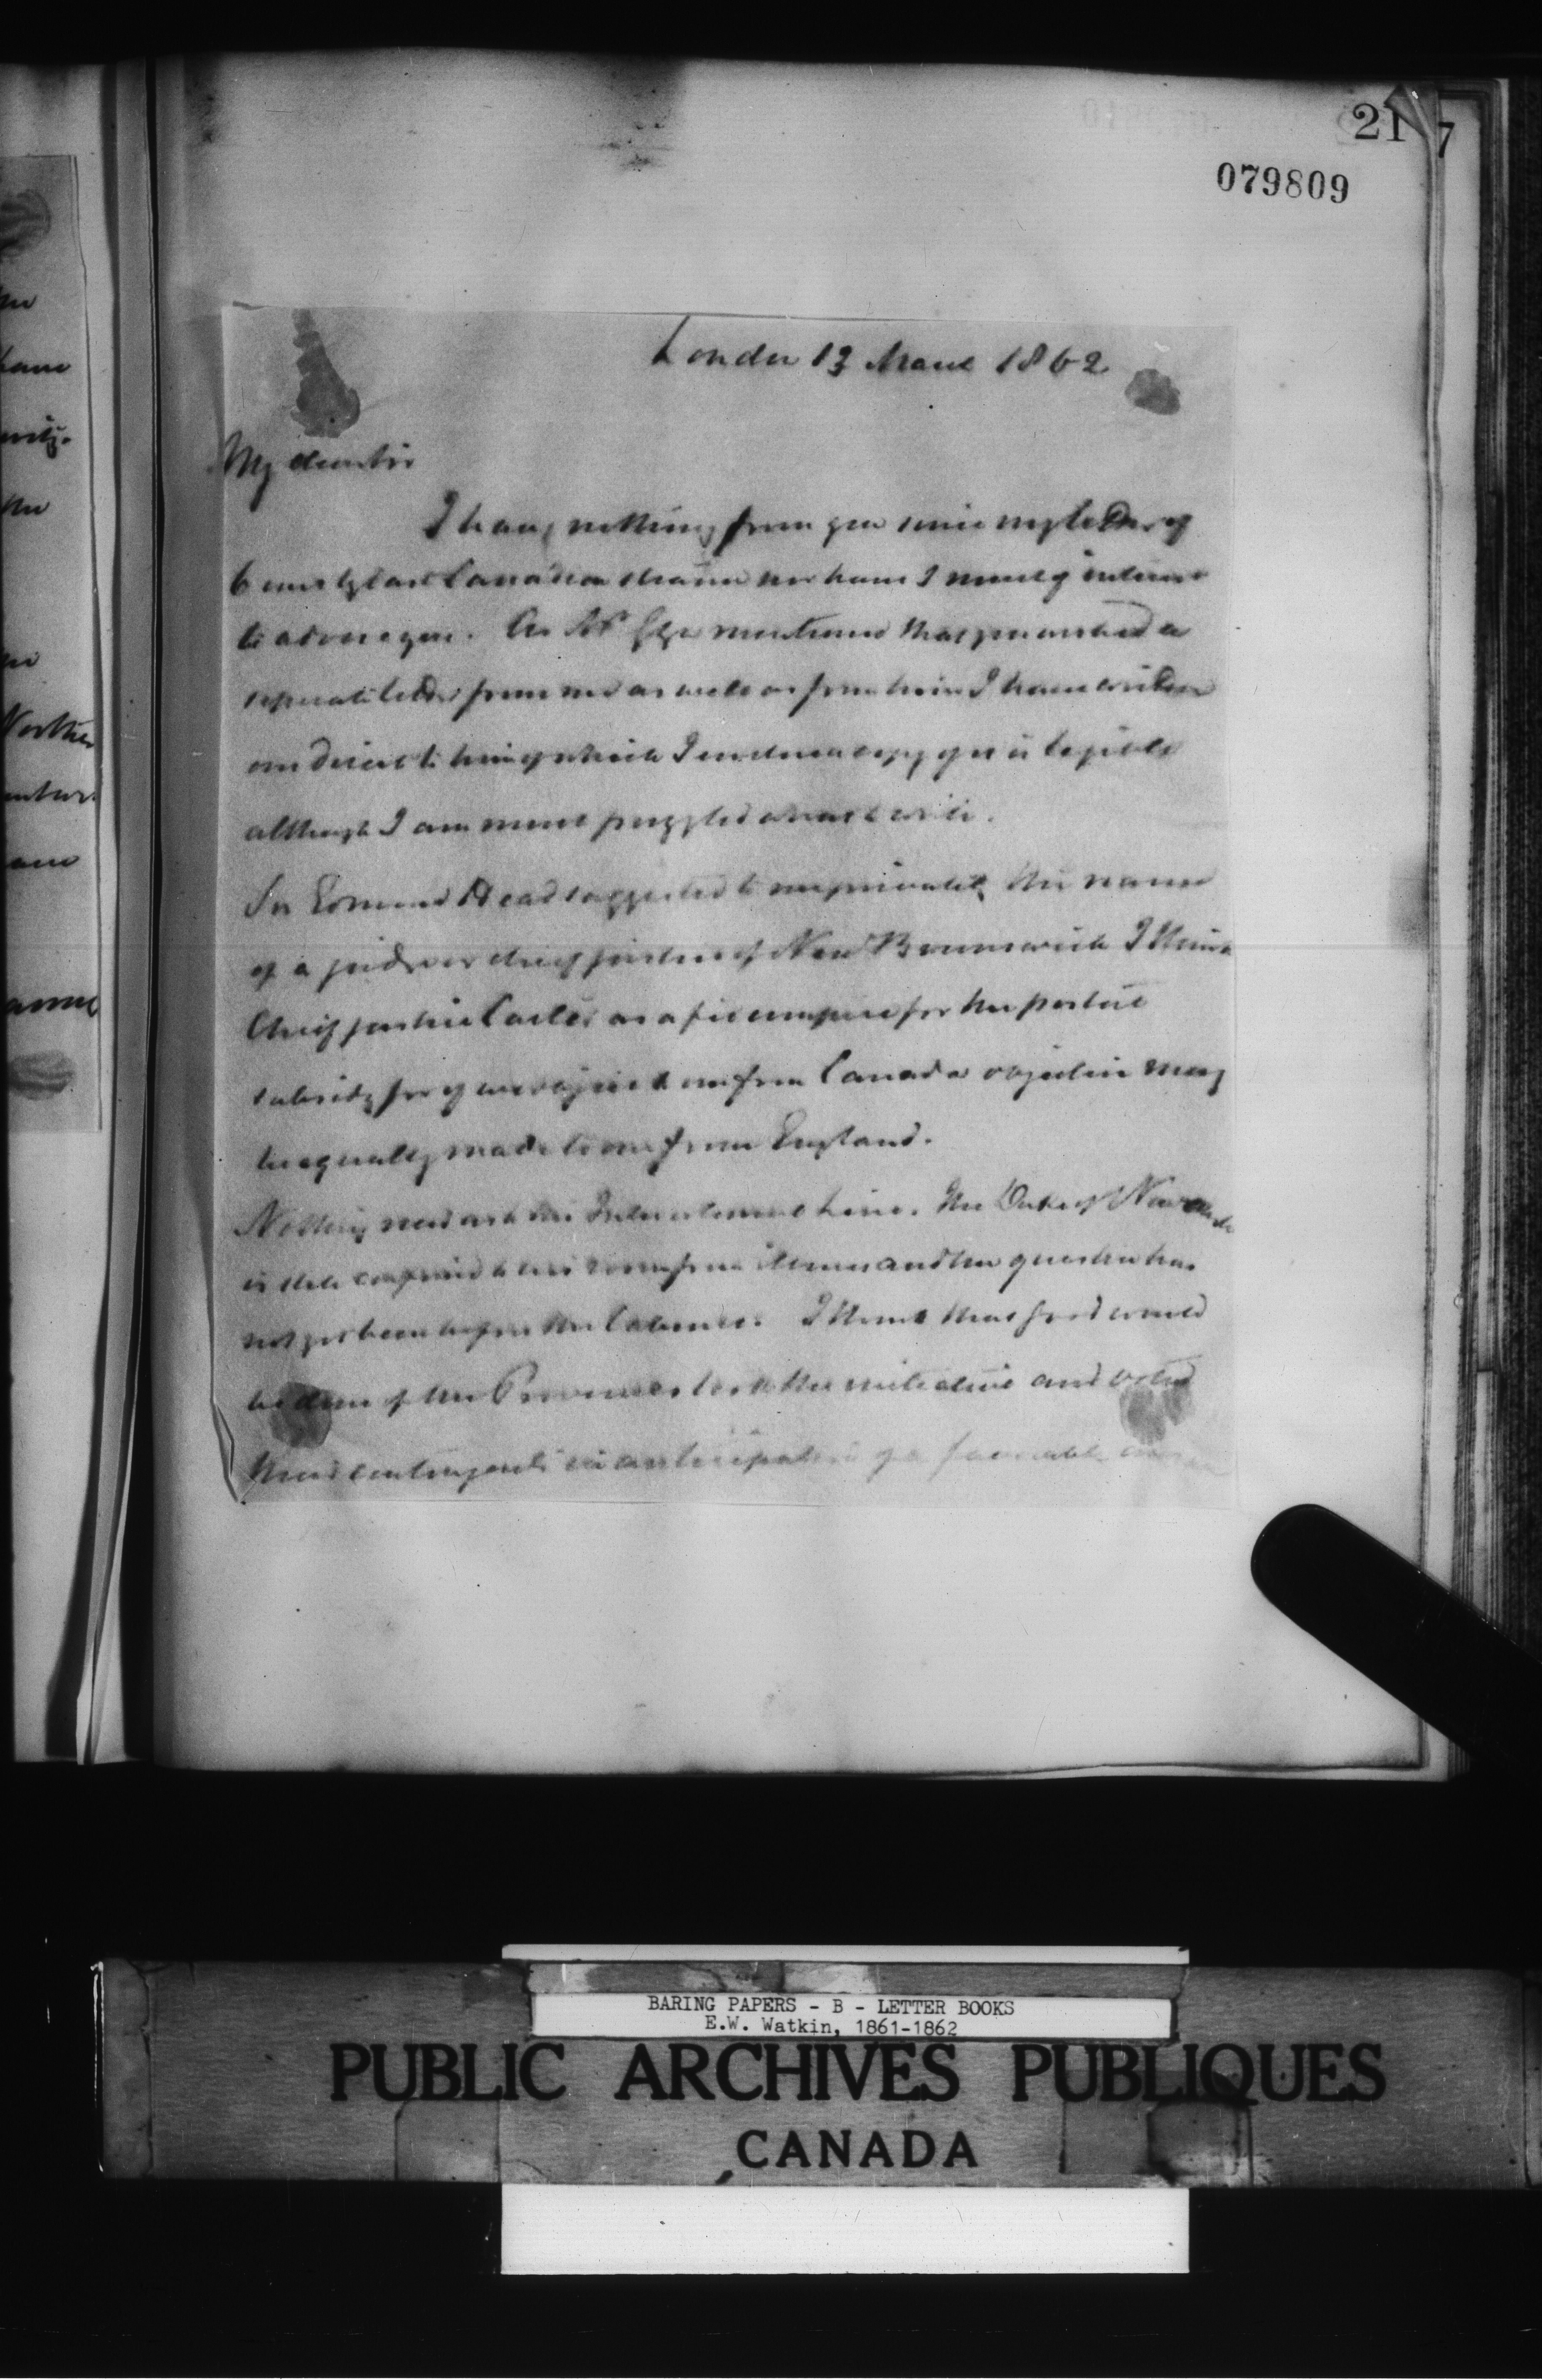 21 7
079809
London 13 March 1862
My dear Sir
I have nothing from you since my letter of
6 inst by last Canadian steamer nor have I much of interest
to advise you. As Mr mentioned that you wanted a
separate letter from me as well as from him I have written
one direct to him of which I enclose a copy if it is legible
although I am much puzzled what to write.
Sir Edmund Head suggested to me privately the name
of a judge or chief justice of New Brunswick I think
Chief Justice Carter as a fit umpire for the postal
subsidy for if we object to one from Canada objection may
be equally made to one from England.
Nothing new as to the Intercolonial Line. The Duke of Newcastle
is still confined to his room from illness and the question has
not yet been before the Cabinet. I think that good would
be done if the Provinces took the initiative and voted
their contingents in anticipation of a favorable
BARING PAPERS - B - LETTER BOOKS
E.W. Watkin, 1861-1862
PUBLIC ARCHIVES PUBLIQUES
CANADA